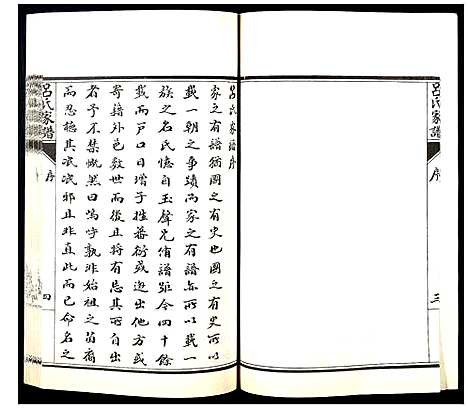 呂氏家譜
序
三
呂氏家譜序
家之有譜猶國之有史也國之有史所以
載一朝之事蹟而家之有譜亦所以載一
族之名氏憶自玉聲兄脩譜距今四十餘
載而戶口日增子姓蕃衍或遷出他方或
寄籍外邑數世而後且將有忘其所自出
者予不禁慨然曰嗚呼孰非始祖之苗裔
而忍聽其泯泯邪且非直此而已命名之
呂氏家譜
序
四